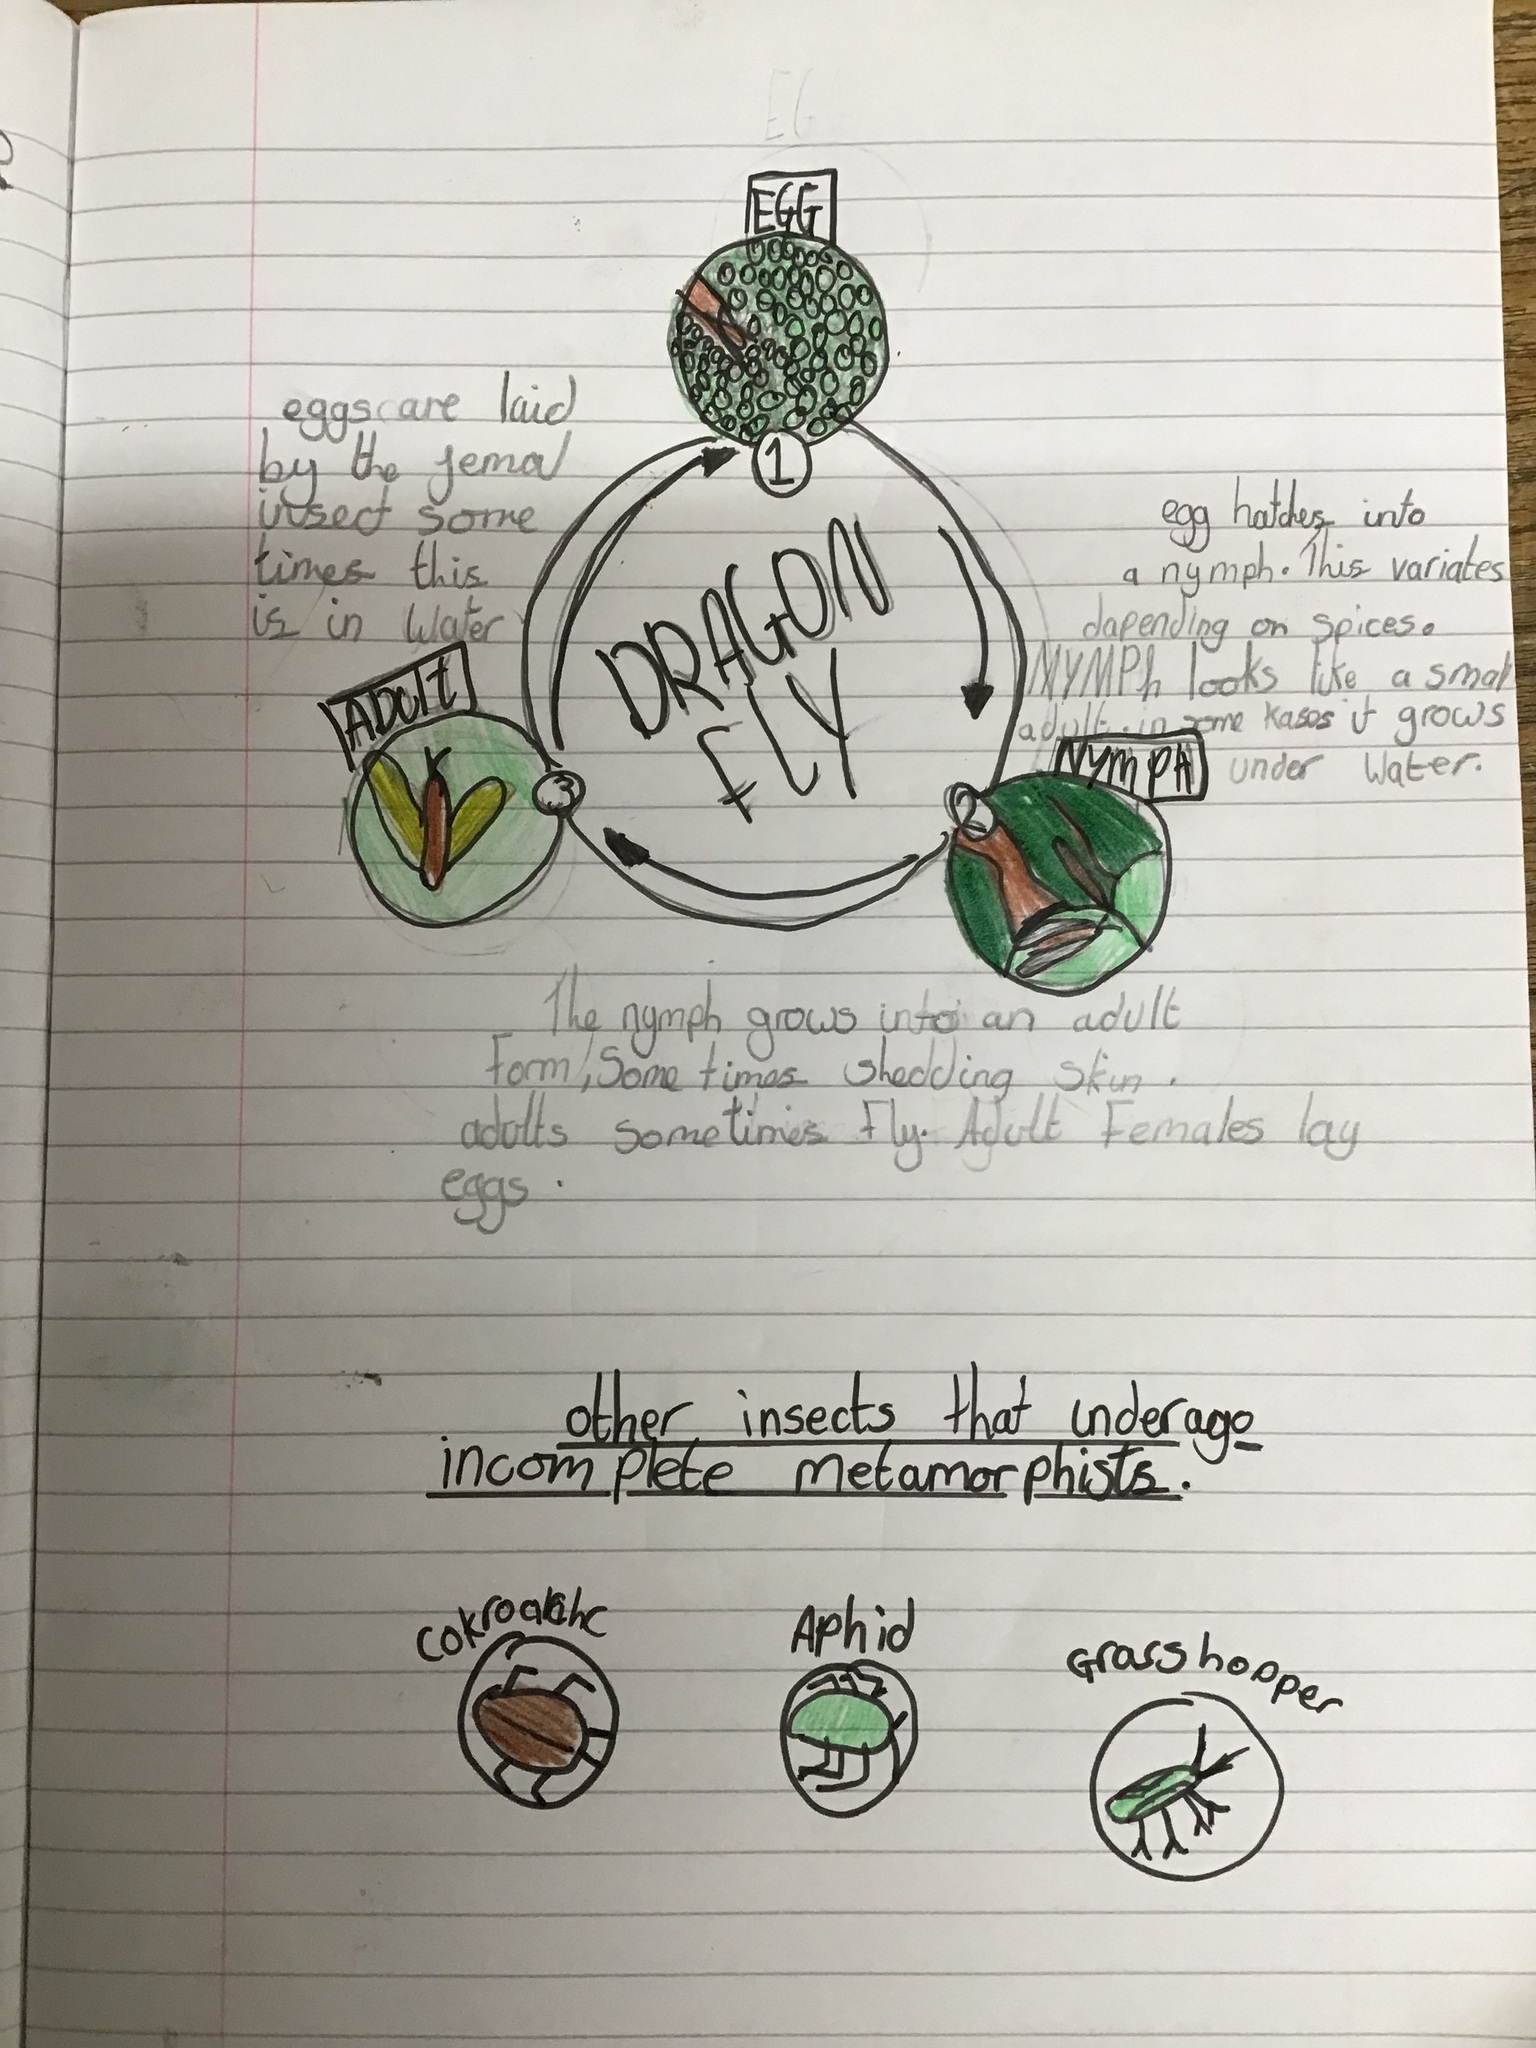 EG
EGG
eggs are laid
by the femal
insect some
times this
is in Water
1
egg hatches into
a nymph. This variates
dapending on spices.
NYMPh looks like a smal
adult. in some kases it grows
under Water.
DRAGON
FLY
ADult
3
2
NympH
The nymph grows into an adult
Form, Some times shedding skin.
adults sometimes Fly. Adult Females lay
eggs.
other insects that underago
incomplete metamorphists.
Aphid
Grasshopper